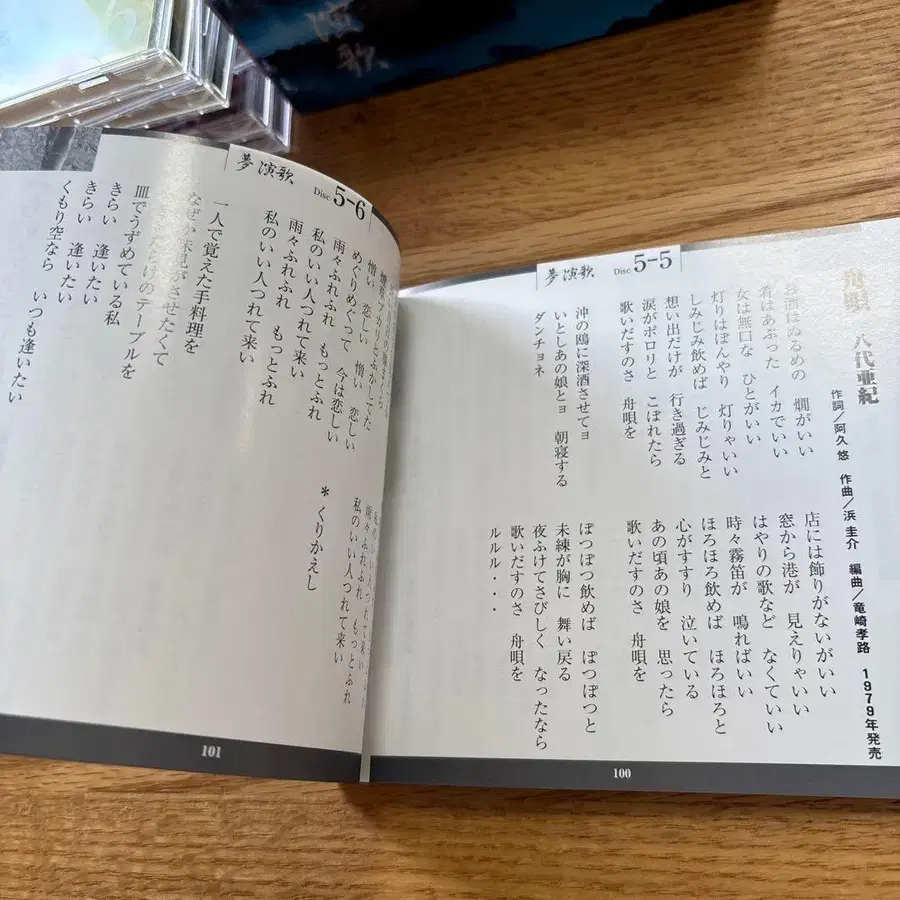 演歌
夢 演歌 Disc 5-5
舟唄 八代亜紀
作詞/阿久 悠 作曲/浜 圭介 編曲/竜崎孝路 1979年発売
お酒はぬるめの 燗がいい
肴はあぶった イカでいい
女は無口な ひとがいい
灯りはぼんやり 灯りゃいい
しみじみ飲めば しみじみと
想い出だけが 行き過ぎる
涙がポロリと こぼれたら
歌いだすのさ 舟唄を
沖の鴎に深酒させてヨ
いとしあの娘とヨ 朝寝する
ダンチョネ
店には飾りがないがいい
窓から港が 見えりゃいい
はやりの歌など なくていい
時々霧笛が 鳴ればいい
ほろほろ飲めば ほろほろと
心がすすり 泣いている
あの頃あの娘を 思ったら
歌いだすのさ 舟唄を
ぽつぽつ飲めば ぽつぽつと
未練が胸に 舞い戻る
夜ふけてさびしく なったなら
歌いだすのさ 舟唄を
ルルル・・・
100
夢 演歌 Disc 5-6
憎い 恋しい 憎い 恋しい
めぐりめぐって 今は恋しい
雨々ふれふれ もっとふれ
私のいい人つれて来い
雨々ふれふれ もっとふれ
私のいい人つれて来い
一人で覚えた手料理を
なぜか味見がさせたくて
だらけのテーブルを
皿でうずめている私
きらい 逢いたい
きらい 逢いたい
くもり空なら いつも逢いたい
雨々ふれふれ もっとふれ
私のいい人つれて来い
＊くりかえし
101